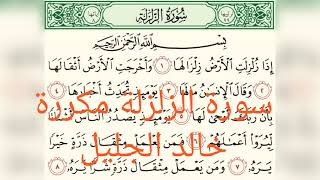 سُورَةُ الزَّلْزَلَةِ
بِسْمِ اللَّهِ الرَّحْمَٰنِ الرَّحِيمِ
إِذَا زُلْزِلَتِ الْأَرْضُ زِلْزَالَهَا ١ وَأَخْرَجَتِ الْأَرْضُ أَثْقَالَهَا
٢ وَقَالَ الْإِنسَانُ مَا لَهَا ٣ يَوْمَئِذٍ تُحَدِّثُ أَخْبَارَهَا ٤
سورة الزلزلة مكررة
بِأَنَّ رَبَّكَ أَوْحَىٰ لَهَا ٥ يَوْمَئِذٍ يَصْدُرُ النَّاسُ أَشْتَاتًا
خالد الجليل
لِّيُرَوْا أَعْمَالَهُمْ ٦ فَمَن يَعْمَلْ مِثْقَالَ ذَرَّةٍ خَيْرًا
يَرَهُ ٧ وَمَن يَعْمَلْ مِثْقَالَ ذَرَّةٍ شَرًّا يَرَهُ ٨